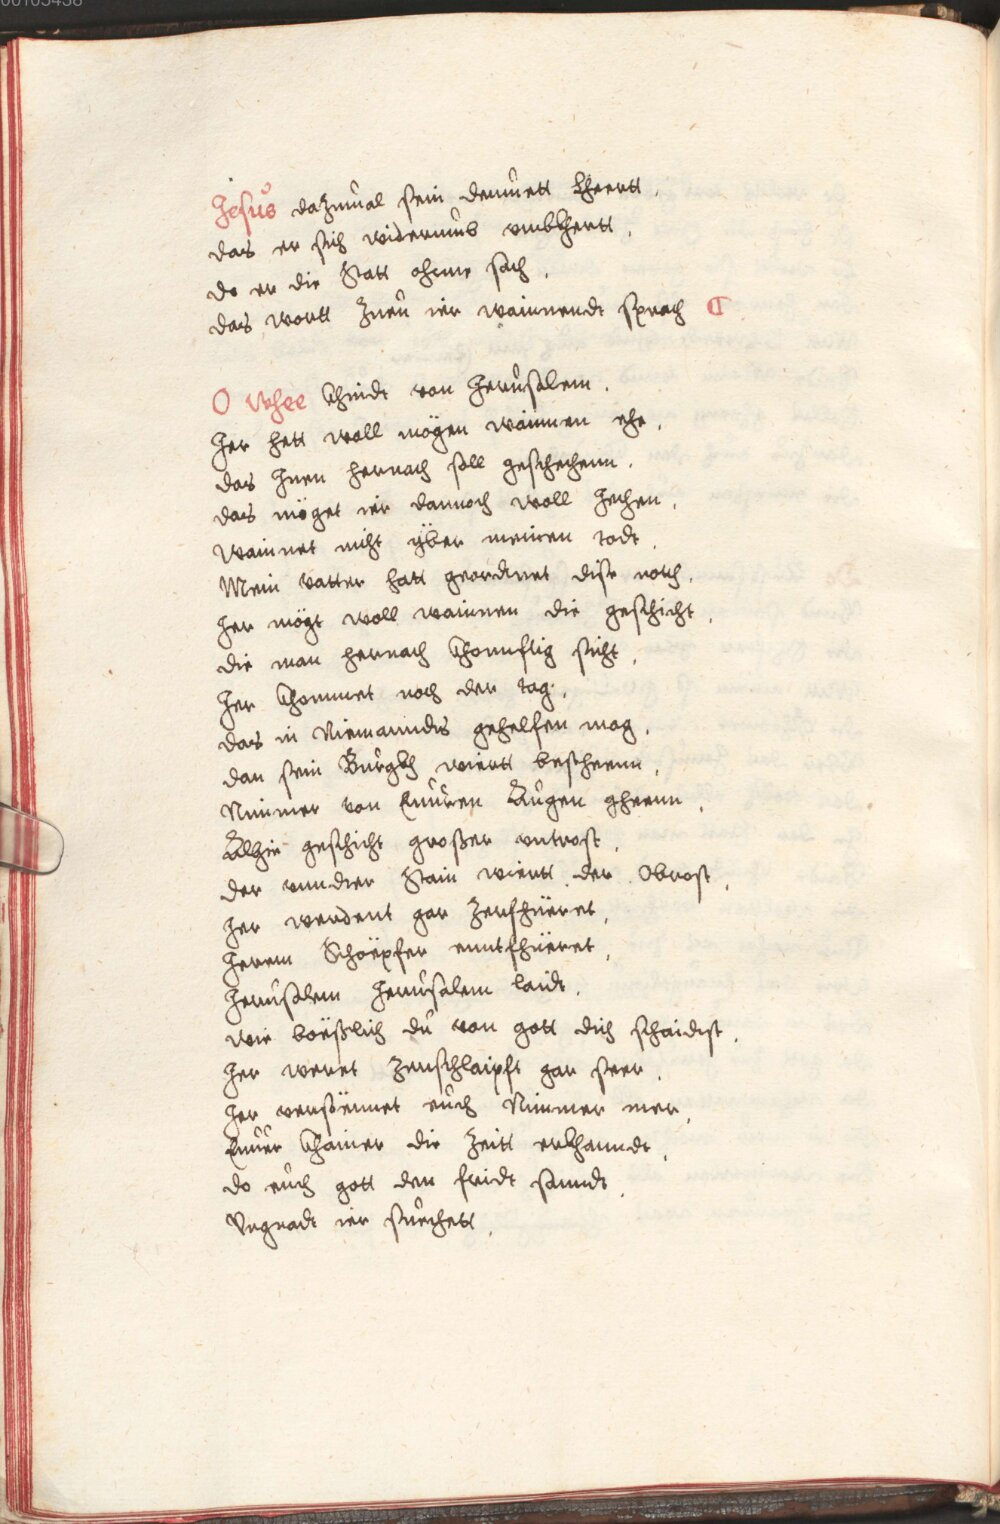 00105438
Jesus dazmual sein demuett kheertt.
das er sich widerumb vmbkhertt.
do er die Statt ohnne sach.
das wortt Zuen ier wainnendt sprach ¶
O Whee khindt von Jerusalem.
Jer hett woll mögen wainnen ehe.
das Juen hernach soll geschechenn.
das möget ier dannoch woll Jechen.
Wainnet nicht yber meinen todt.
Mein vatter hatt geordnet dise noth.
Jer mögt woll wainnen die geschicht.
die man hernach khonnftig sicht.
Jer khommet noch der tag.
das in Niemanndts gehelfen mag.
dan sein Burgkh wiertt beschernn.
Nimmer von Euuren Augen ghernn.
Alhie geschicht großer vntrost.
der vnndter Stain wiertt der Obrost.
Jer werdent gar Zersthüeret.
Jerem Schöepfer enntfhüeret.
Jerusalem Jerusalem laidt.
wie boößlich du von gott dich schaidest.
Jer weret Zerschlaipft gar seer.
Jer versüennet euch Nimmer mer.
Euuer khainer die Zeitt erkhanndt.
do euch gott den fridt sanndt.
Vngnadt ier suechett.